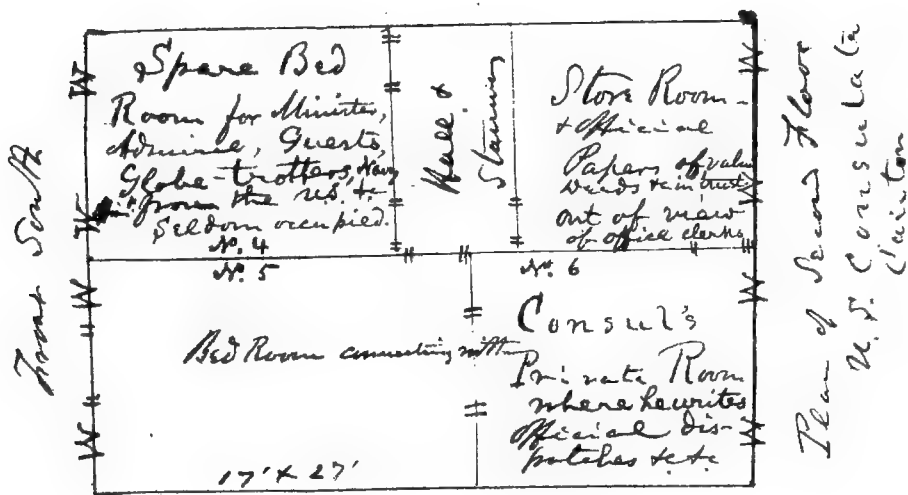 Spare Bed
Room for Minister,
Admiral, Guests,
Globe trotters, Navy
from the U.S. &c
Seldom occupied.
No. 4
Hall &
Stairway
Store Room -
& Official
Papers of value
deeds & in trust
out of view
of office clerks
No. 5
Bed Room connecting with
17' x 27'
No. 6
Consul's
Private Room
where he writes
official dis-
patches &c &c
Front South
W
W
W
W
W
W
W
W
Plan of Second Floor
U.S. Consulate
Canton